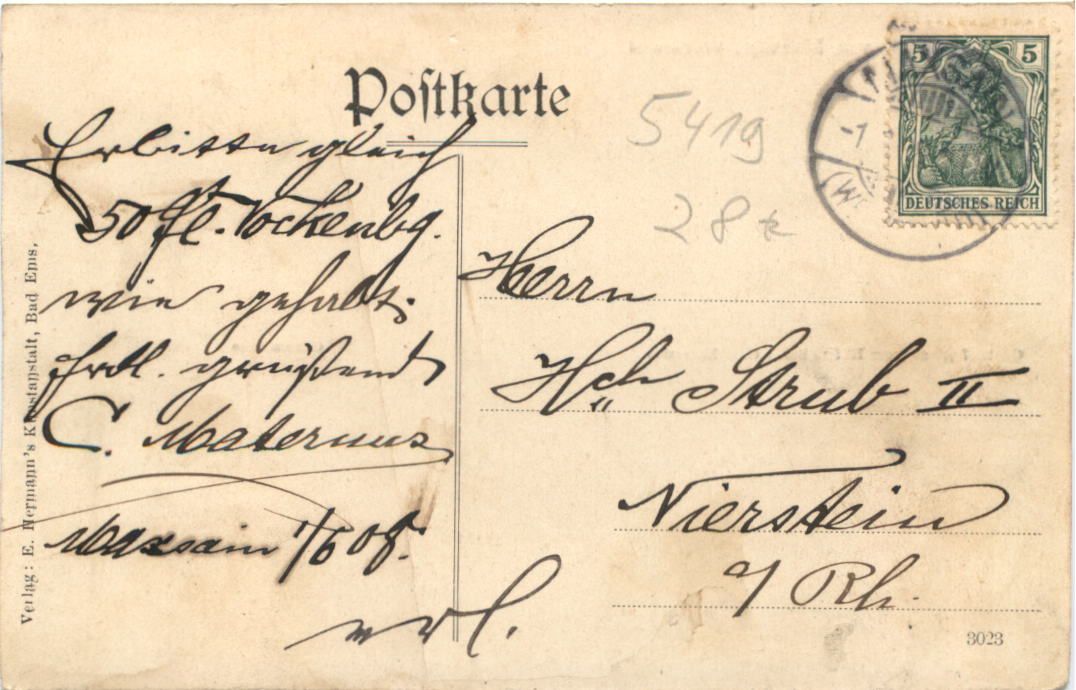 Postkarte
5419
28
5 5
DEUTSCHES REICH
Erbitte gleich
50 Fl. Vockenbg.
wie gehabt.
Frdl. grüßend
C. Maternus
Maxsain 1/6 08.
erl.
Herrn
Hch Strub II
Nierstein
a/ Rh.
3023
Verlag: E. Hermann's Kunstanstalt, Bad Ems.